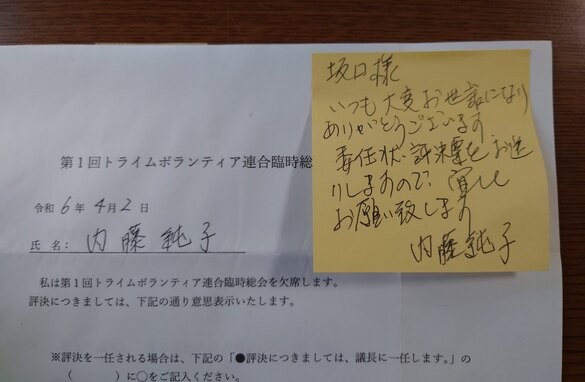 坂口様
いつも大変お世話になり
ありがとうございます
委任状、評決票をお送
りしますので、宜しく
お願い致します
内藤純子
第1回トライムボランティア連合臨時総
令和 6 年 4 月 2 日
氏 名: 内藤 純子
私は第1回トライムボランティア連合臨時総会を欠席します。
評決につきましては、下記の通り意思表示いたします。
※評決を一任される場合は、下記の「●評決につきましては、議長に一任します。」の
( )に○をご記入ください。